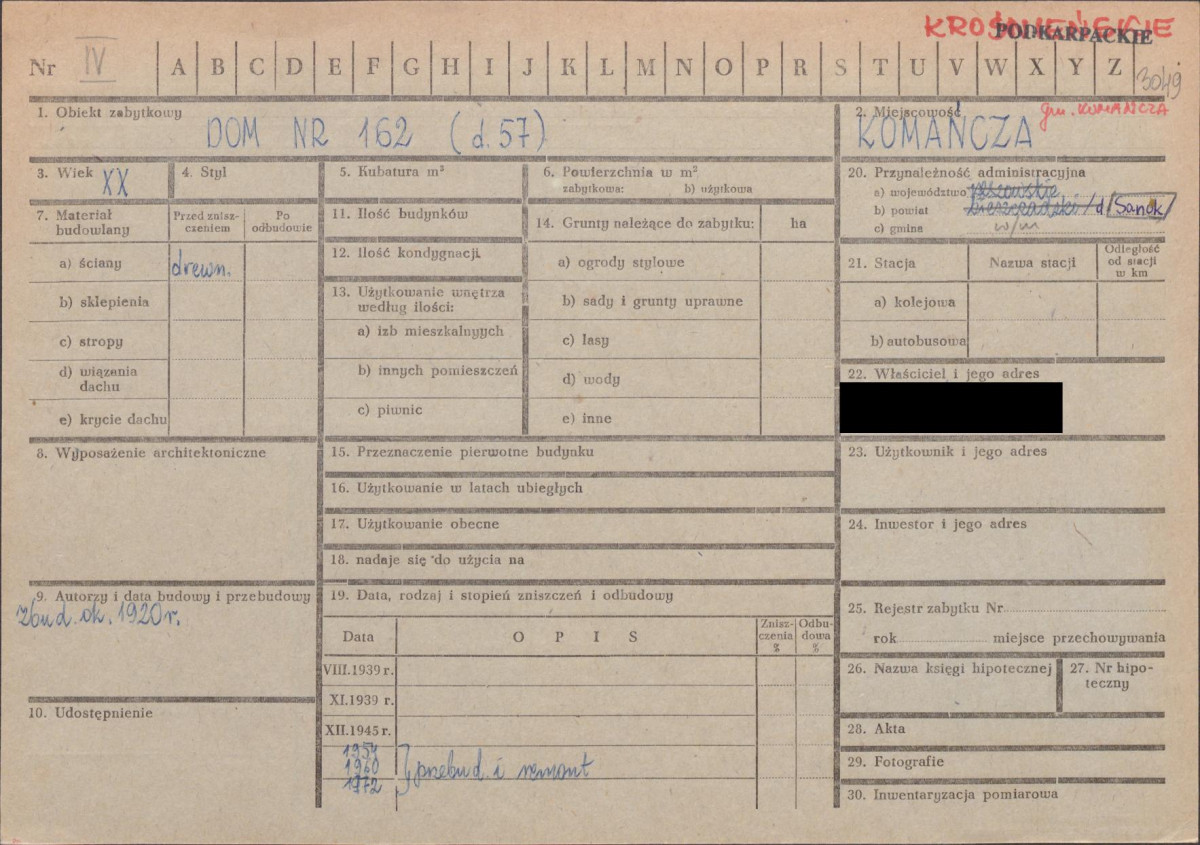 KROŚNIEŃSKIE
PODKARPACKIE
Nr IV A B C D E F G H I J K L M N O P R S T U V W X Y Z
3049
1. Obiekt zabytkowy
DOM NR 162 (d. 57)
2. Miejscowość
gm. KOMAŃCZA
KOMAŃCZA
3. Wiek XX
4. Styl
5. Kubatura m³
6. Powierzchnia w m²
zabytkowa: b) użytkowa
20. Przynależność administracyjna
a) województwo rzeszowskie
b) powiat bieszczadzki /d/ Sanok/
c) gmina w/m
7. Materiał budowlany
Przed zniszczeniem
Po odbudowie
a) ściany drewn.
b) sklepienia
c) stropy
d) wiązania dachu
e) krycie dachu
11. Ilość budynków
12. Ilość kondygnacji
13. Użytkowanie wnętrza
według ilości:
a) izb mieszkalnych
b) innych pomieszczeń
c) piwnic
14. Grunty należące do zabytku: ha
a) ogrody stylowe
b) sady i grunty uprawne
c) lasy
d) wody
e) inne
21. Stacja
Nazwa stacji
Odległość
od stacji
w km
a) kolejowa
b) autobusowa
22. Właściciel i jego adres
8. Wyposażenie architektoniczne
15. Przeznaczenie pierwotne budynku
16. Użytkowanie w latach ubiegłych
17. Użytkowanie obecne
18. nadaje się do użycia na
23. Użytkownik i jego adres
24. Inwestor i jego adres
9. Autorzy i data budowy i przebudowy
zbud. ok. 1920 r.
10. Udostępnienie
19. Data, rodzaj i stopień zniszczeń i odbudowy
Data
O P I S
Zniszczenia %
Odbudowa %
VIII.1939 r.
XI.1939 r.
XII.1945 r.
1954
1960 } przebud. i remont
1972
25. Rejestr zabytku Nr
rok miejsce przechowywania
26. Nazwa księgi hipotecznej
27. Nr hipoteczny
28. Akta
29. Fotografie
30. Inwentaryzacja pomiarowa